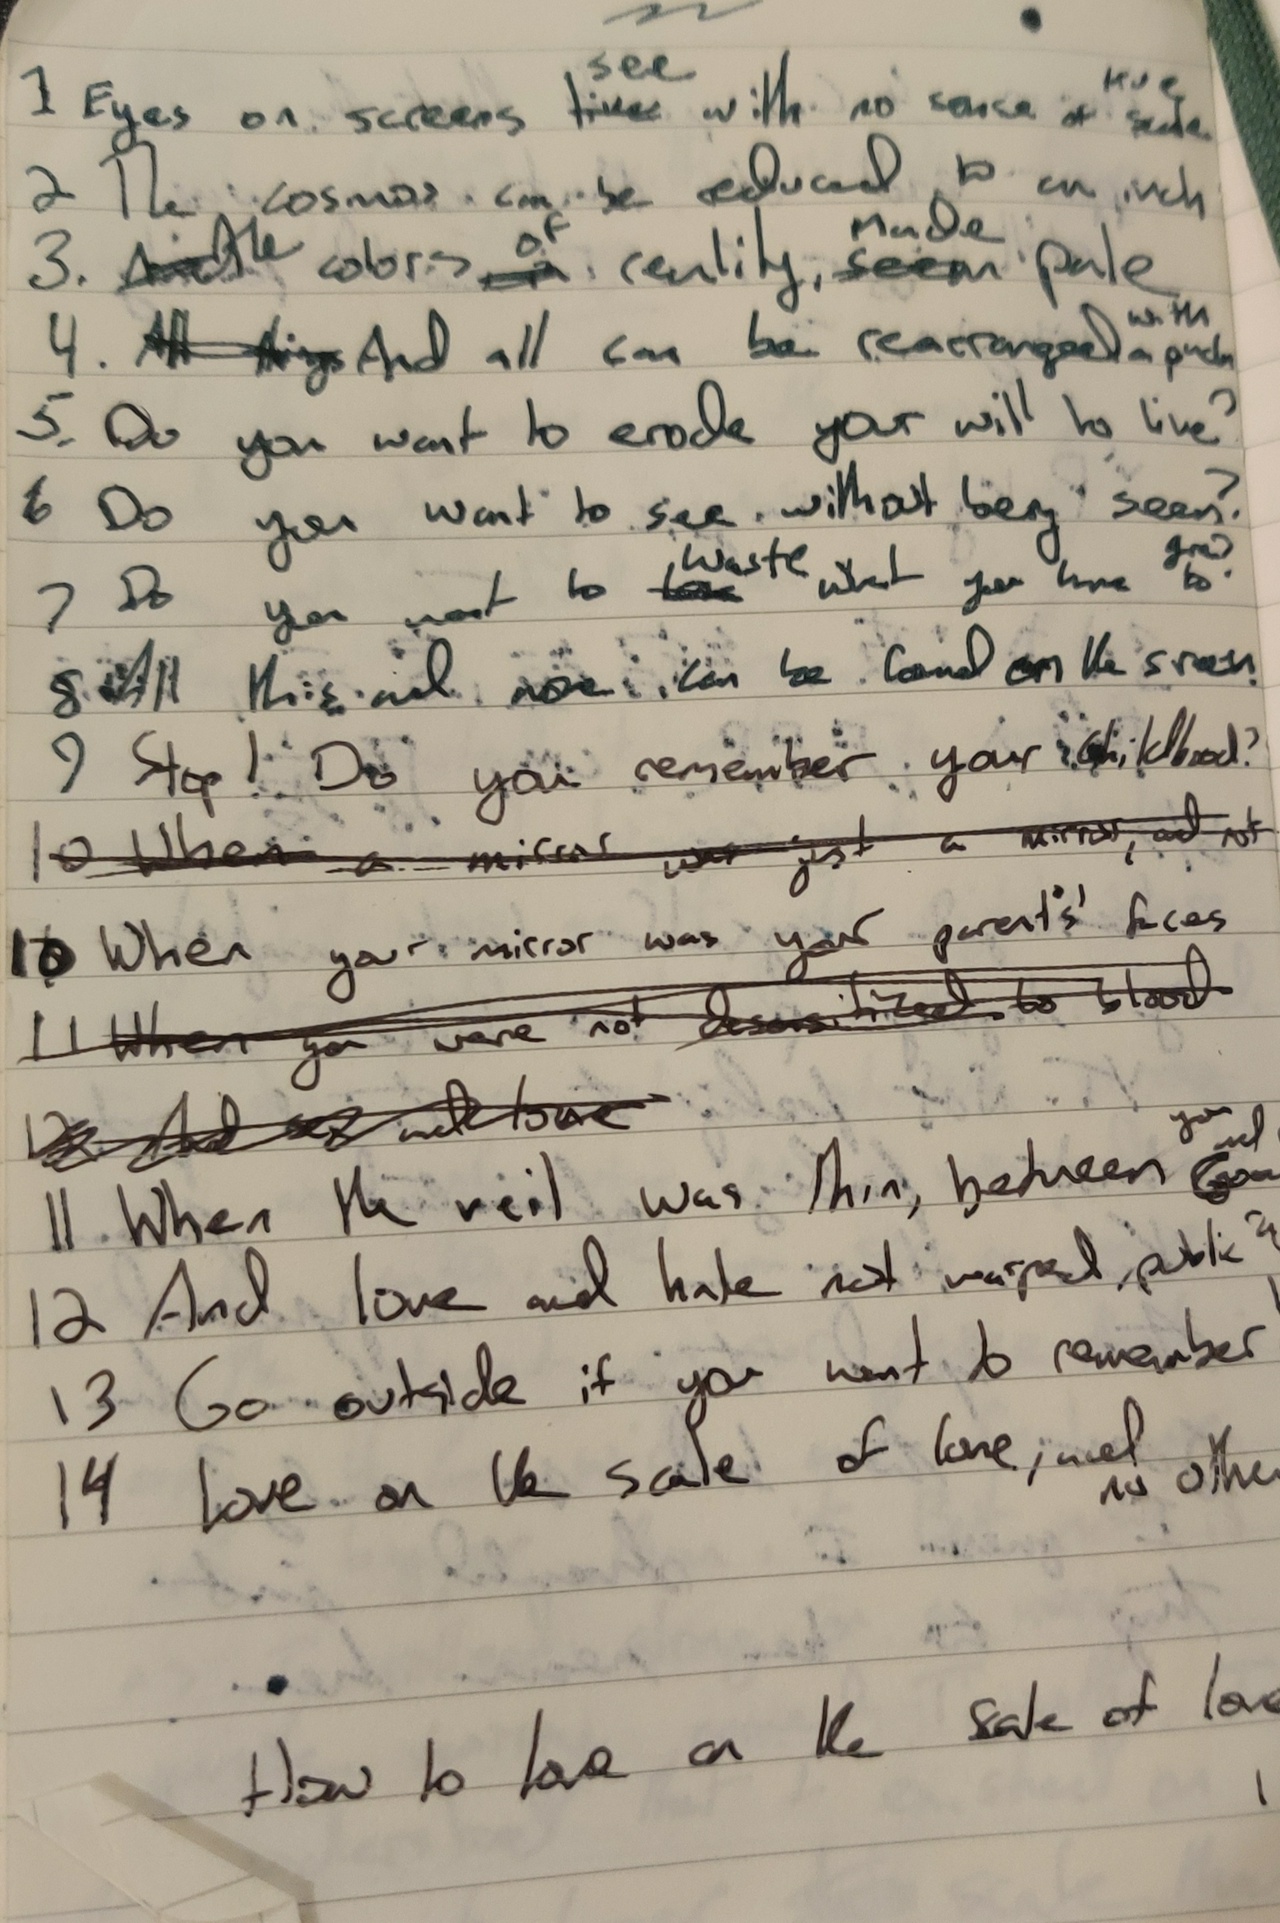 see
true
1 Eyes on screens with no sense of scale
2 The cosmos can be reduced to an inch
of made
3. The colors reality, seem pale
with
4. All things And all can be rearranged a pinch
5. Do you want to erode your will to live?
6 Do you want to see without being seen?
waste give?
7 Do you want to what you have to
8 All this and more can be found on the screen
9 Stop! Do you remember your childhood?
10 When a mirror was just a mirror, and not
10 When your mirror was your parent's' faces
11 When you were not desensitized to blood
12 And and love
you and
11 When the veil was thin, between God
12 And love and hate not warped, public
13 Go outside if you want to remember
14 Love on the scale of love, and
no other
How to love on the scale of love